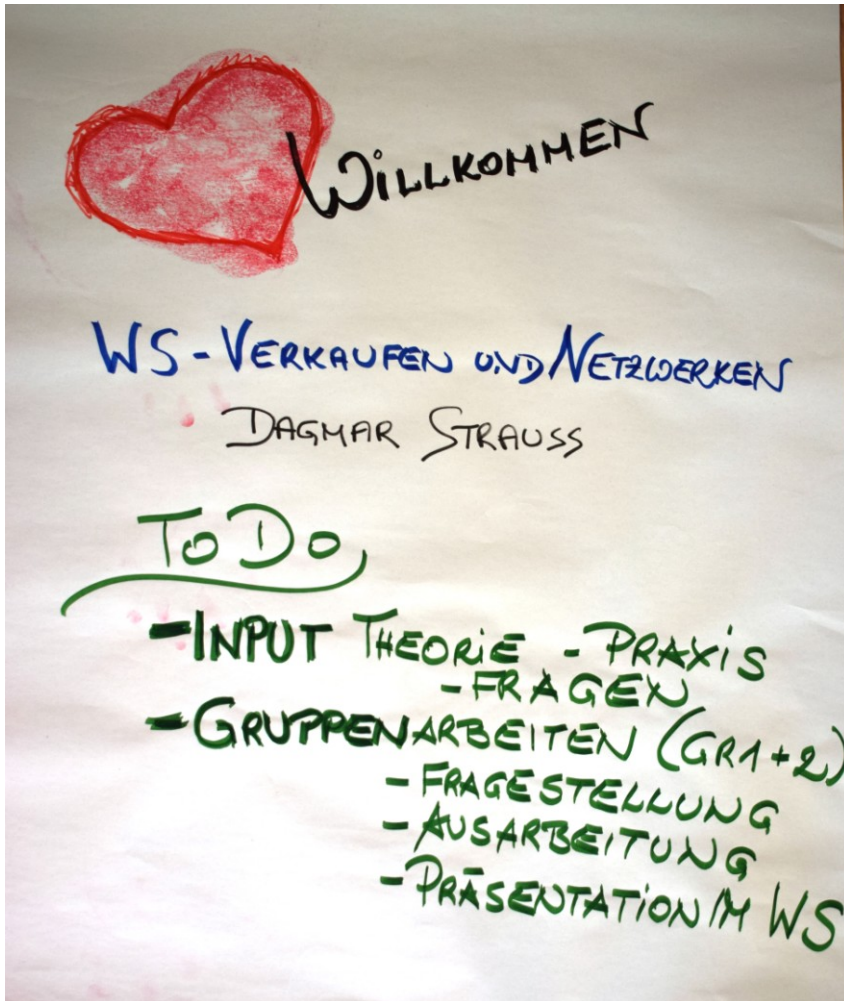 WILLKOMMEN
WS-VERKAUFEN UND NETZWERKEN
DAGMAR STRAUSS
To Do
- INPUT THEORIE - PRAXIS
- FRAGEN
- GRUPPENARBEITEN (GR1+2)
- FRAGESTELLUNG
- AUSARBEITUNG
- PRÄSENTATION IM WS